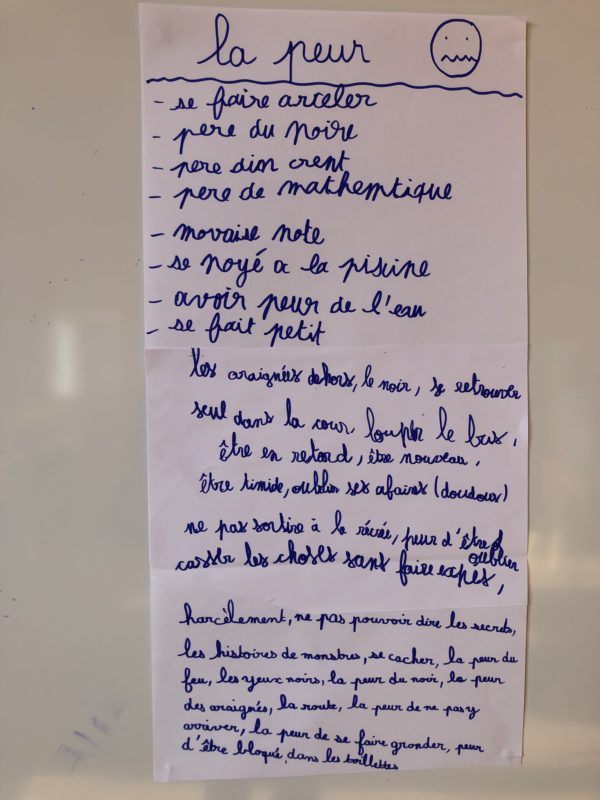 la peur
- se faire arceler
- pere du noire
- pere dim crent
- pere de mathemtique
- movaise note
- se noyé a la piscine
- avoir peur de l'eau
- se fait petit
les araignées dehors, le noir, se retrouver
seul dans la cour, loupér le bus,
être en retard, être nouveau,
être timide, oublier ses afaires (doudous)
ne pas sortire à la récrée, peur d'être
oublier
casser les choses sans faire expes,
harcèlement, ne pas pouvoir dire les secrets,
les histoires de monstres, se cacher, la peur du
feu, les yeux noirs, la peur du noir, la peur
des araignés, la route, la peur de ne pas y
arriver, la peur de se faire gronder, peur
d'être bloqué dans les toillettes